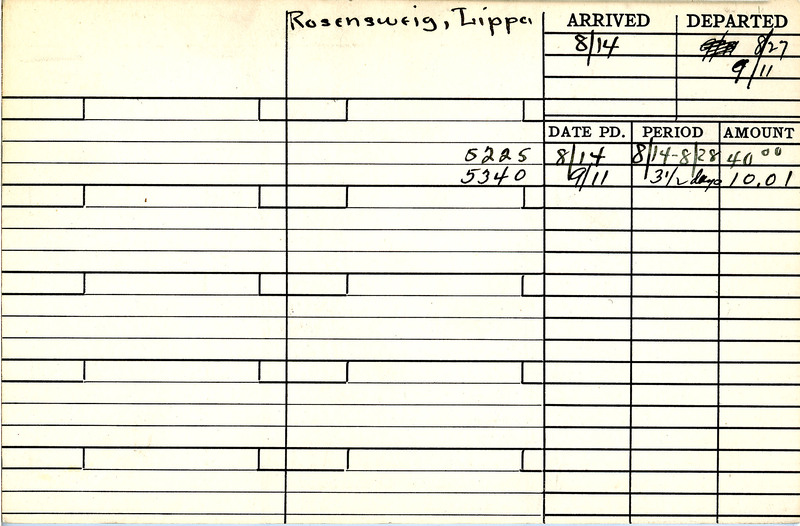 Rosensweig, Lippa
ARRIVED DEPARTED
8/14 8/27
9/11
DATE PD. PERIOD AMOUNT
5225 8/14 8/14-8/28 40 00
5340 9/11 3 1/2 days 10.01